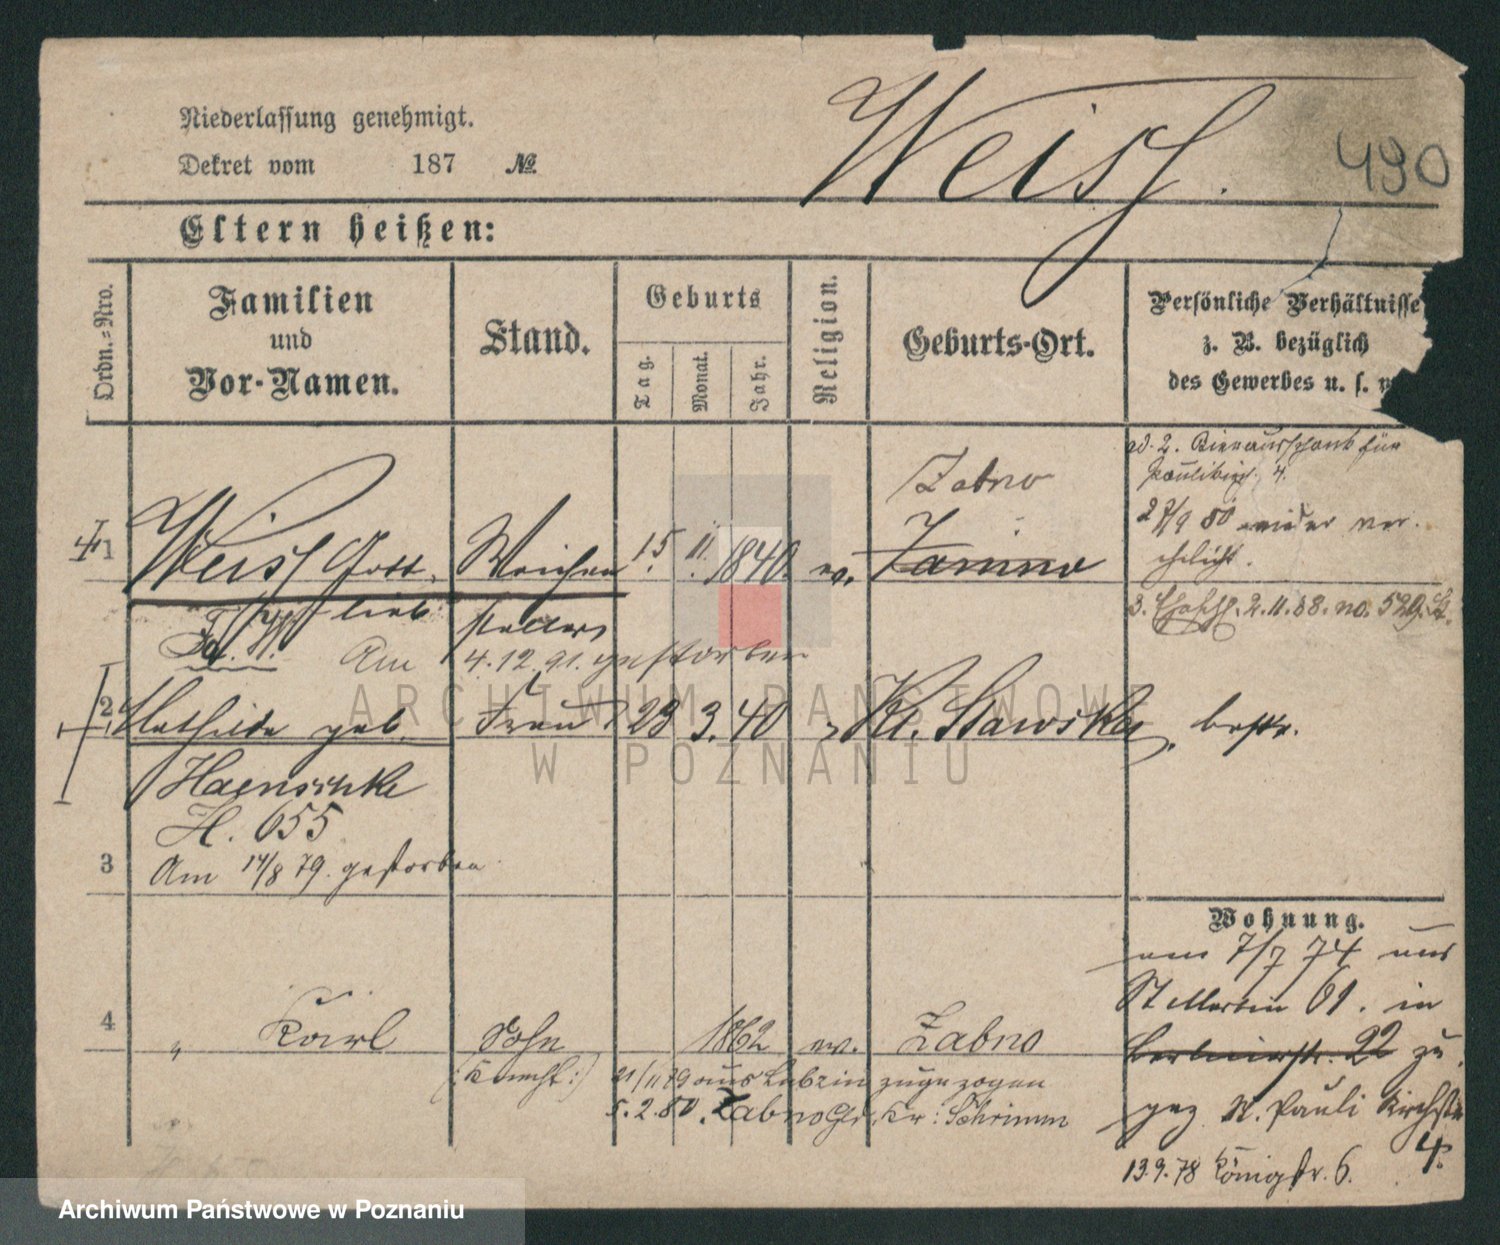 Weiss.
490
Niederlassung genehmigt.
Dekret vom 187 №
Eltern heißen:
Ordn.-Nro.
Familien
und
Vor-Namen.
Stand.
Geburts
Tag.
Monat.
Jahr.
Religion.
Geburts-Ort.
Persönliche Verhältnisse
z. B. bezüglich
des Gewerbes u. s.
1 Weiss Gott- Weichen 15. 11. 1840. ev. Zanino
Zabno
lieb stellers
Am 4.12.91. gestorben
2 Mathilde geb. Frau 23 3. 40 Kl. Stawisker
Haenschke
H. 655
3 Am 14/8 79. gestorben
4 " Karl Sohn 1862 ev. Zabno
(:Knecht:) 21/11 79 aus Lubzin zugezogen
5.2.80. Zabno Kr: Schrimm
Bierausschank für
27/9 80 wieder ver-
ehelicht.
2.11.88. no. 529.
Wohnung.
am 7/7 74 aus
St Martin 61. in
Berlinerstr. 22 zu
gez n. Pauli Kirchstr
4.
13.9.78 Königstr. 6.
ARCHIWUM PAŃSTWOWE
W POZNANIU
Archiwum Państwowe w Poznaniu